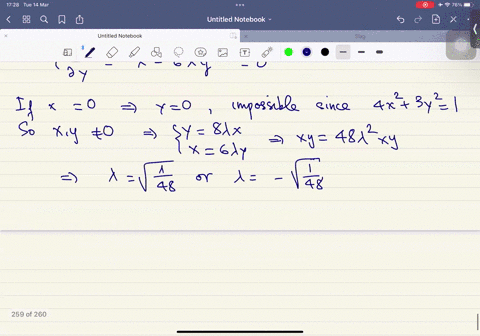 17:28 Tue 14 Mar
76%
Untitled Notebook
Untitled Notebook
∂y = x - 6λy = 0
If x = 0 ⇒ y=0, impossible since 4x²+3y²=1
So x,y ≠0 ⇒ { y = 8λx
x = 6λy ⇒ xy = 48λ²xy
⇒ λ = √(λ/48) or λ = -√(1/48)
259 of 260